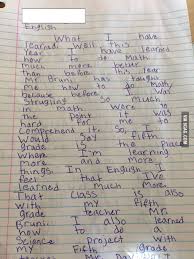 English
What I have
learned. Well this
year I have learned
how to do math
much more better
than before this year
Mr. Bruni has taught
me how to do math
because before, I was
struggling so much
in math were to
the point it was
hard for me to
Comprehend it. So,
would say fifth
grade is the place
where I'm learning
more and more
things. In English I
feel that I've
learned much more
That class is also
with my fifth
grade teacher Mr.
Bruni. I also learned
how to do a
Science Project with
my fifth
VIA 9GAG.COM